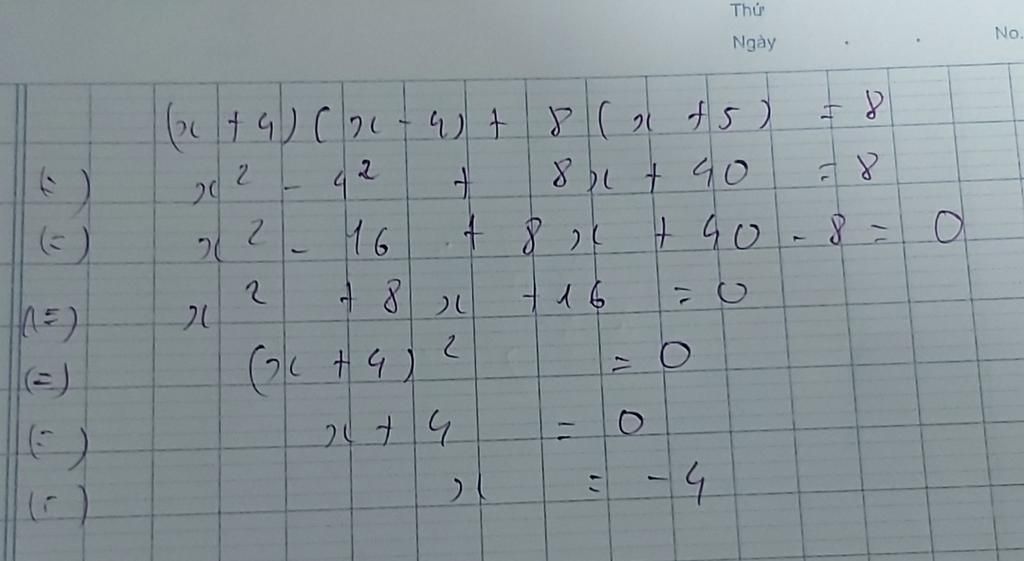 Thứ
Ngày . . No.
(x + 4) ( x - 4) + 8 ( x + 5 ) = 8
(=) x² - 4² + 8x + 40 = 8
(=) x² - 16 + 8x + 40 - 8 = 0
(=) x² + 8x + 16 = 0
(=) (x + 4)² = 0
(=) x + 4 = 0
(=) x = -4